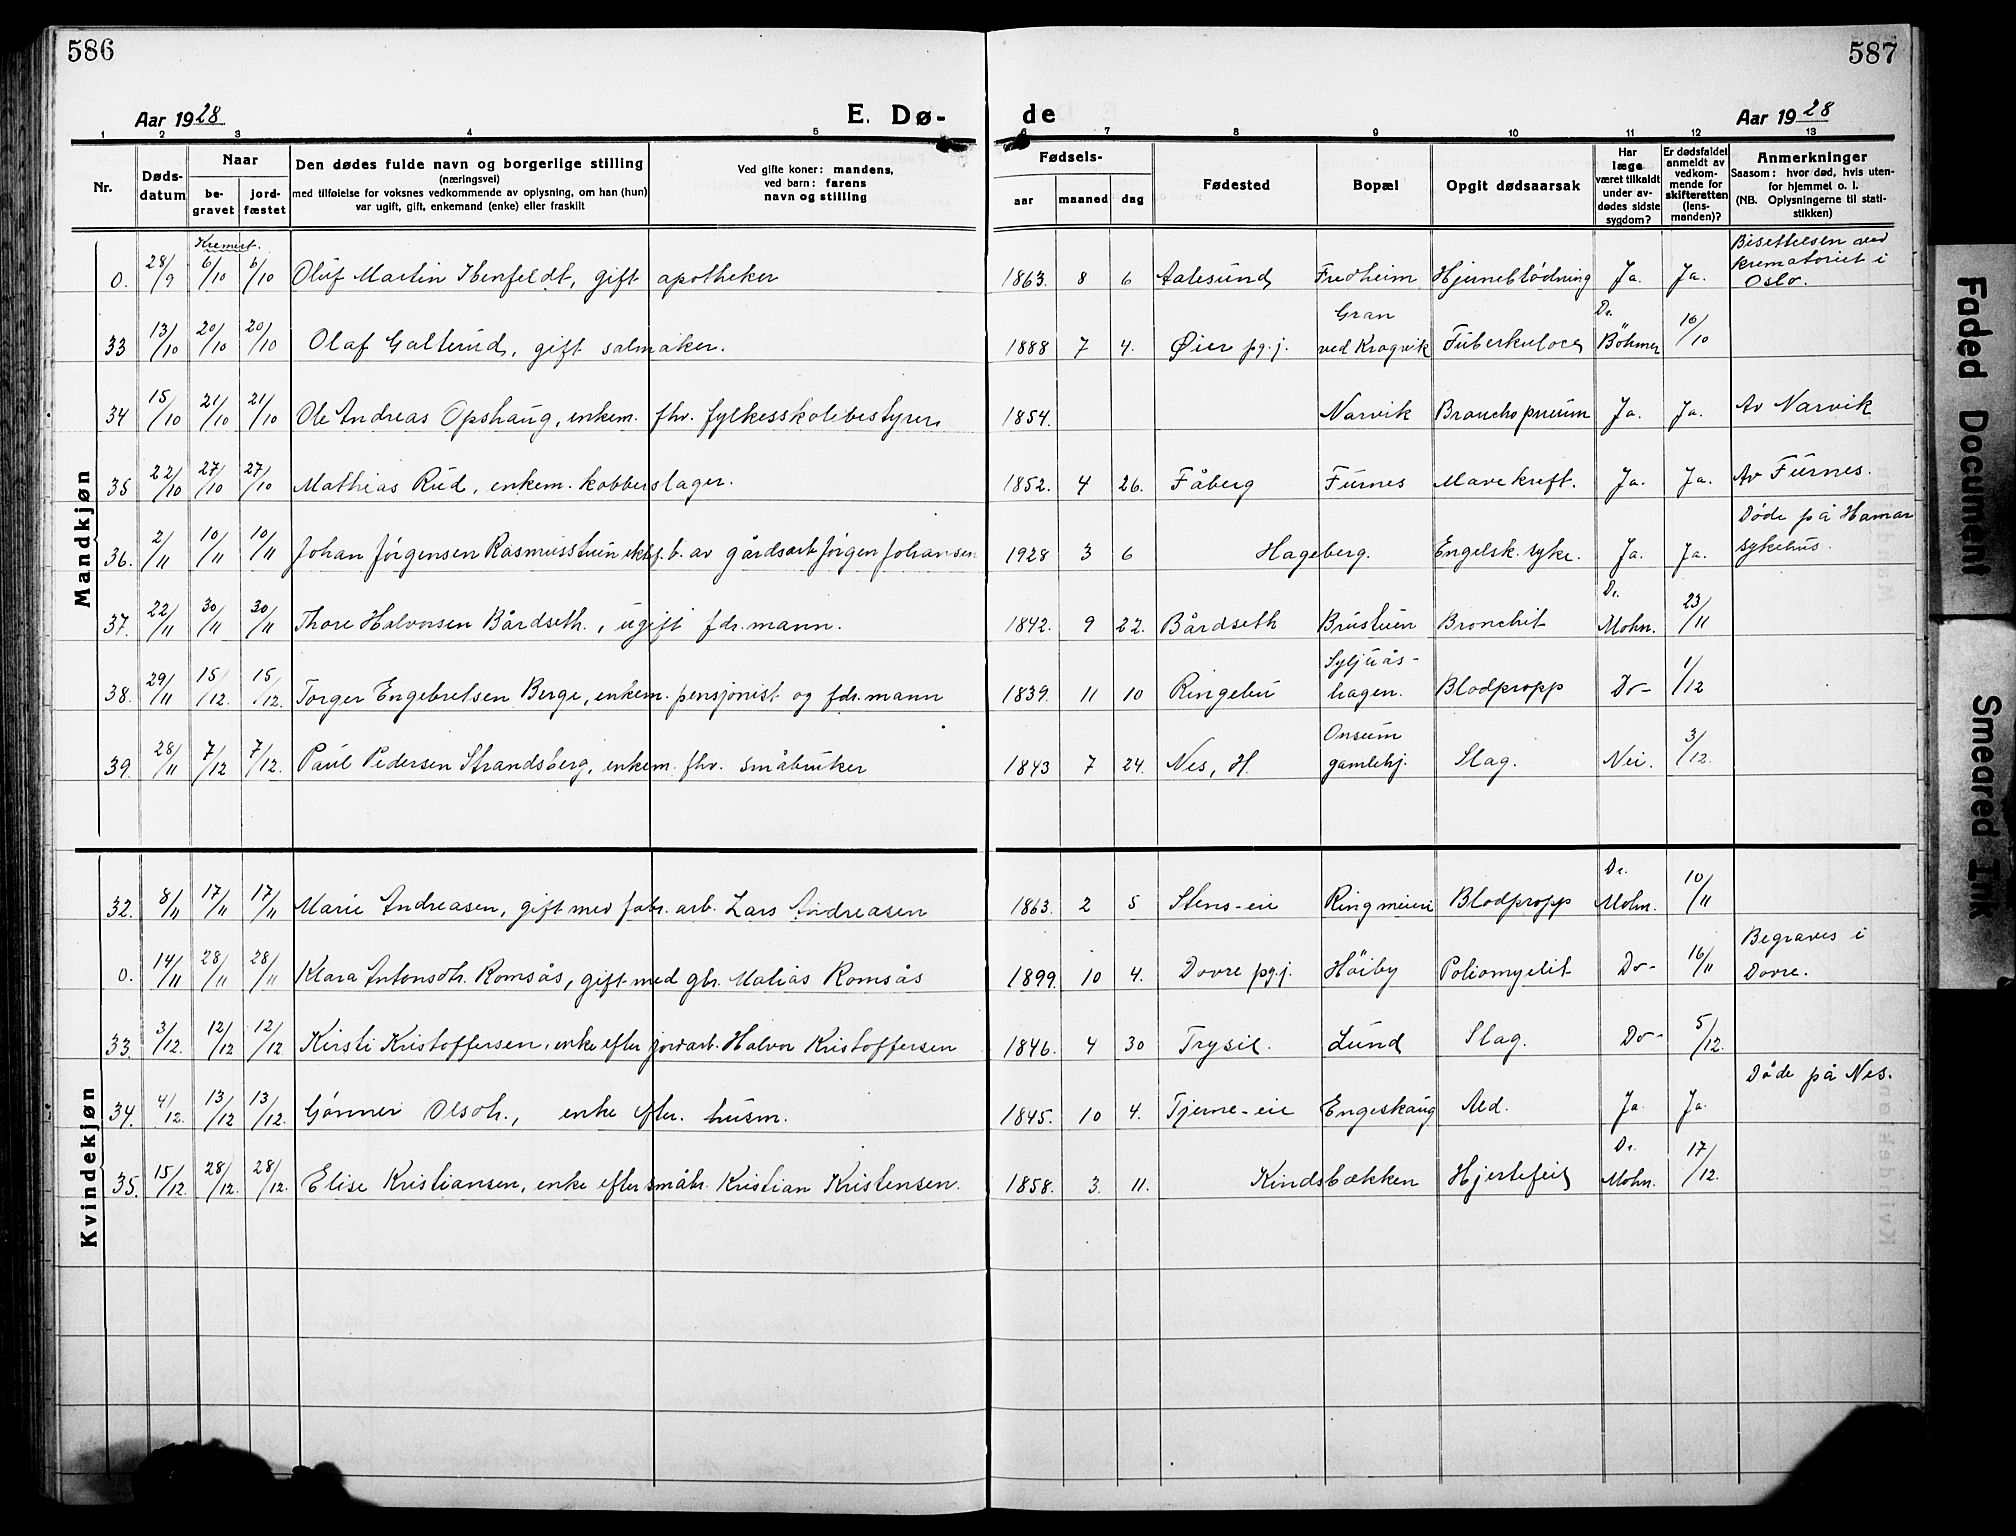 586
587
Aar 1928
E. Dø-
de
Aar 1928
1 2 3 4 5 6 7 8 9 10 11 12 13
Nr.
Døds-
datum
Naar
be-
gravet
jord-
fæstet
Den dødes fulde navn og borgerlige stilling
(næringsvei)
med tilføielse for voksnes vedkommende av oplysning, om han (hun)
var ugift, gift, enkemand (enke) eller fraskilt
Ved gifte koner: mandens,
ved barn: farens
navn og stilling
Fødsels-
aar maaned dag
Fødested
Bopæl
Opgit dødsaarsak
Har
læge
været tilkaldt
under av-
dødes sidste
sygdom?
Er dødsfaldet
anmeldt av
vedkom-
mende for
skifteretten
(lens-
manden)?
Anmerkninger
Saasom: hvor død, hvis uten-
for hjemmet o. l.
(NB. Oplysningerne til stati-
stikken)
Mandkjøn
Kremert.
0. 28/9 6/10 6/10 Oluf Martin Ibenfeldt, gift apotheker 1863. 8 6 Aalesund Fredheim Hjerneblödning Ja. Ja. Bisettelsen ved
krematoriet i
Oslo.
33 13/10 20/10 20/10 Olaf Galterud, gift salmaker. 1888 7 4. Øier pg.j. Gran
ved Krogvik Tuberkulose Dr.
Böhmer 16/10
34 15/10 21/10 21/10 Ole Andreas Opshaug, enkem. fhv. fylkesskolebestyrer 1854. Narvik Bronchopneum Ja. Ja. Av Narvik
35 22/10 27/10 27/10 Mathias Rud, enkem. kobberslager. 1852. 4 26. Fåberg Furnes Mavekreft. Ja. Ja. Av Furnes.
36. 2/11 10/11 10/11 Johan Jørgensen Rasmusstuen ektef. b. av gårdsarb Jørgen Johansen 1928 3 6 Hageberg. Engelsk. syke. Ja. Ja. Döde på Hamar
sykehus.
37. 22/11 30/11 30/11 Thore Halvorsen Bårdseth., ugift fdr. mann. 1842. 9 22. Bårdseth Brustuen Bronchit Dr.
Mohn. 23/11
38. 29/11 15/12. 15/12. Torger Engebretsen Berge, enkem. pensjonist og fdr. mann 1839. 11 10 Ringebu Syljuås-
hagen. Blodpropp Do- 1/12
39. 28/11 7/12 7/12. Paul Pedersen Strandsberg, enkem. fhv. småbruker 1843 7 24. Nes, H. Onsum
gamlehj. Slag. Nei. 3/12.
Kvindekjøn
32. 8/11 17/11 17/11 Marie Andreasen, gift med fabr. arb. Lars Andreasen 1863. 2 5 Stens-eie Ringmeieri Blodpropp Dr.
Mohn. 10/11
0. 14/11 28/11 28/11 Klara Antonsdtr. Romsås, gift med gbr. Matias Romsås 1899. 10 4. Dovre pg.j. Höiby Poliomyelit Do- 16/11 Begraves i
Dovre.
33. 3/12. 12/12 12/12 Kirsti Kristoffersen, enke efter jordarb. Halvor Kristoffersen 1846. 4 30 Trysil. Lund Slag. Do- 5/12.
34. 4/12. 13/12 13/12. Gunner Olsdtr., enke efter. husm. 1845. 10 4. Tjerne-eie Engeskaug Ald. Ja. Ja. Döde på Nes.
35. 15/12. 28/12. 28/12. Elise Kristiansen, enke efter småbr. Kristian Kristensen. 1858. 3. 11. Kindsbækken Hjertefeil Dr.
Mohn. 17/12.
Faded Document
Smeared Ink